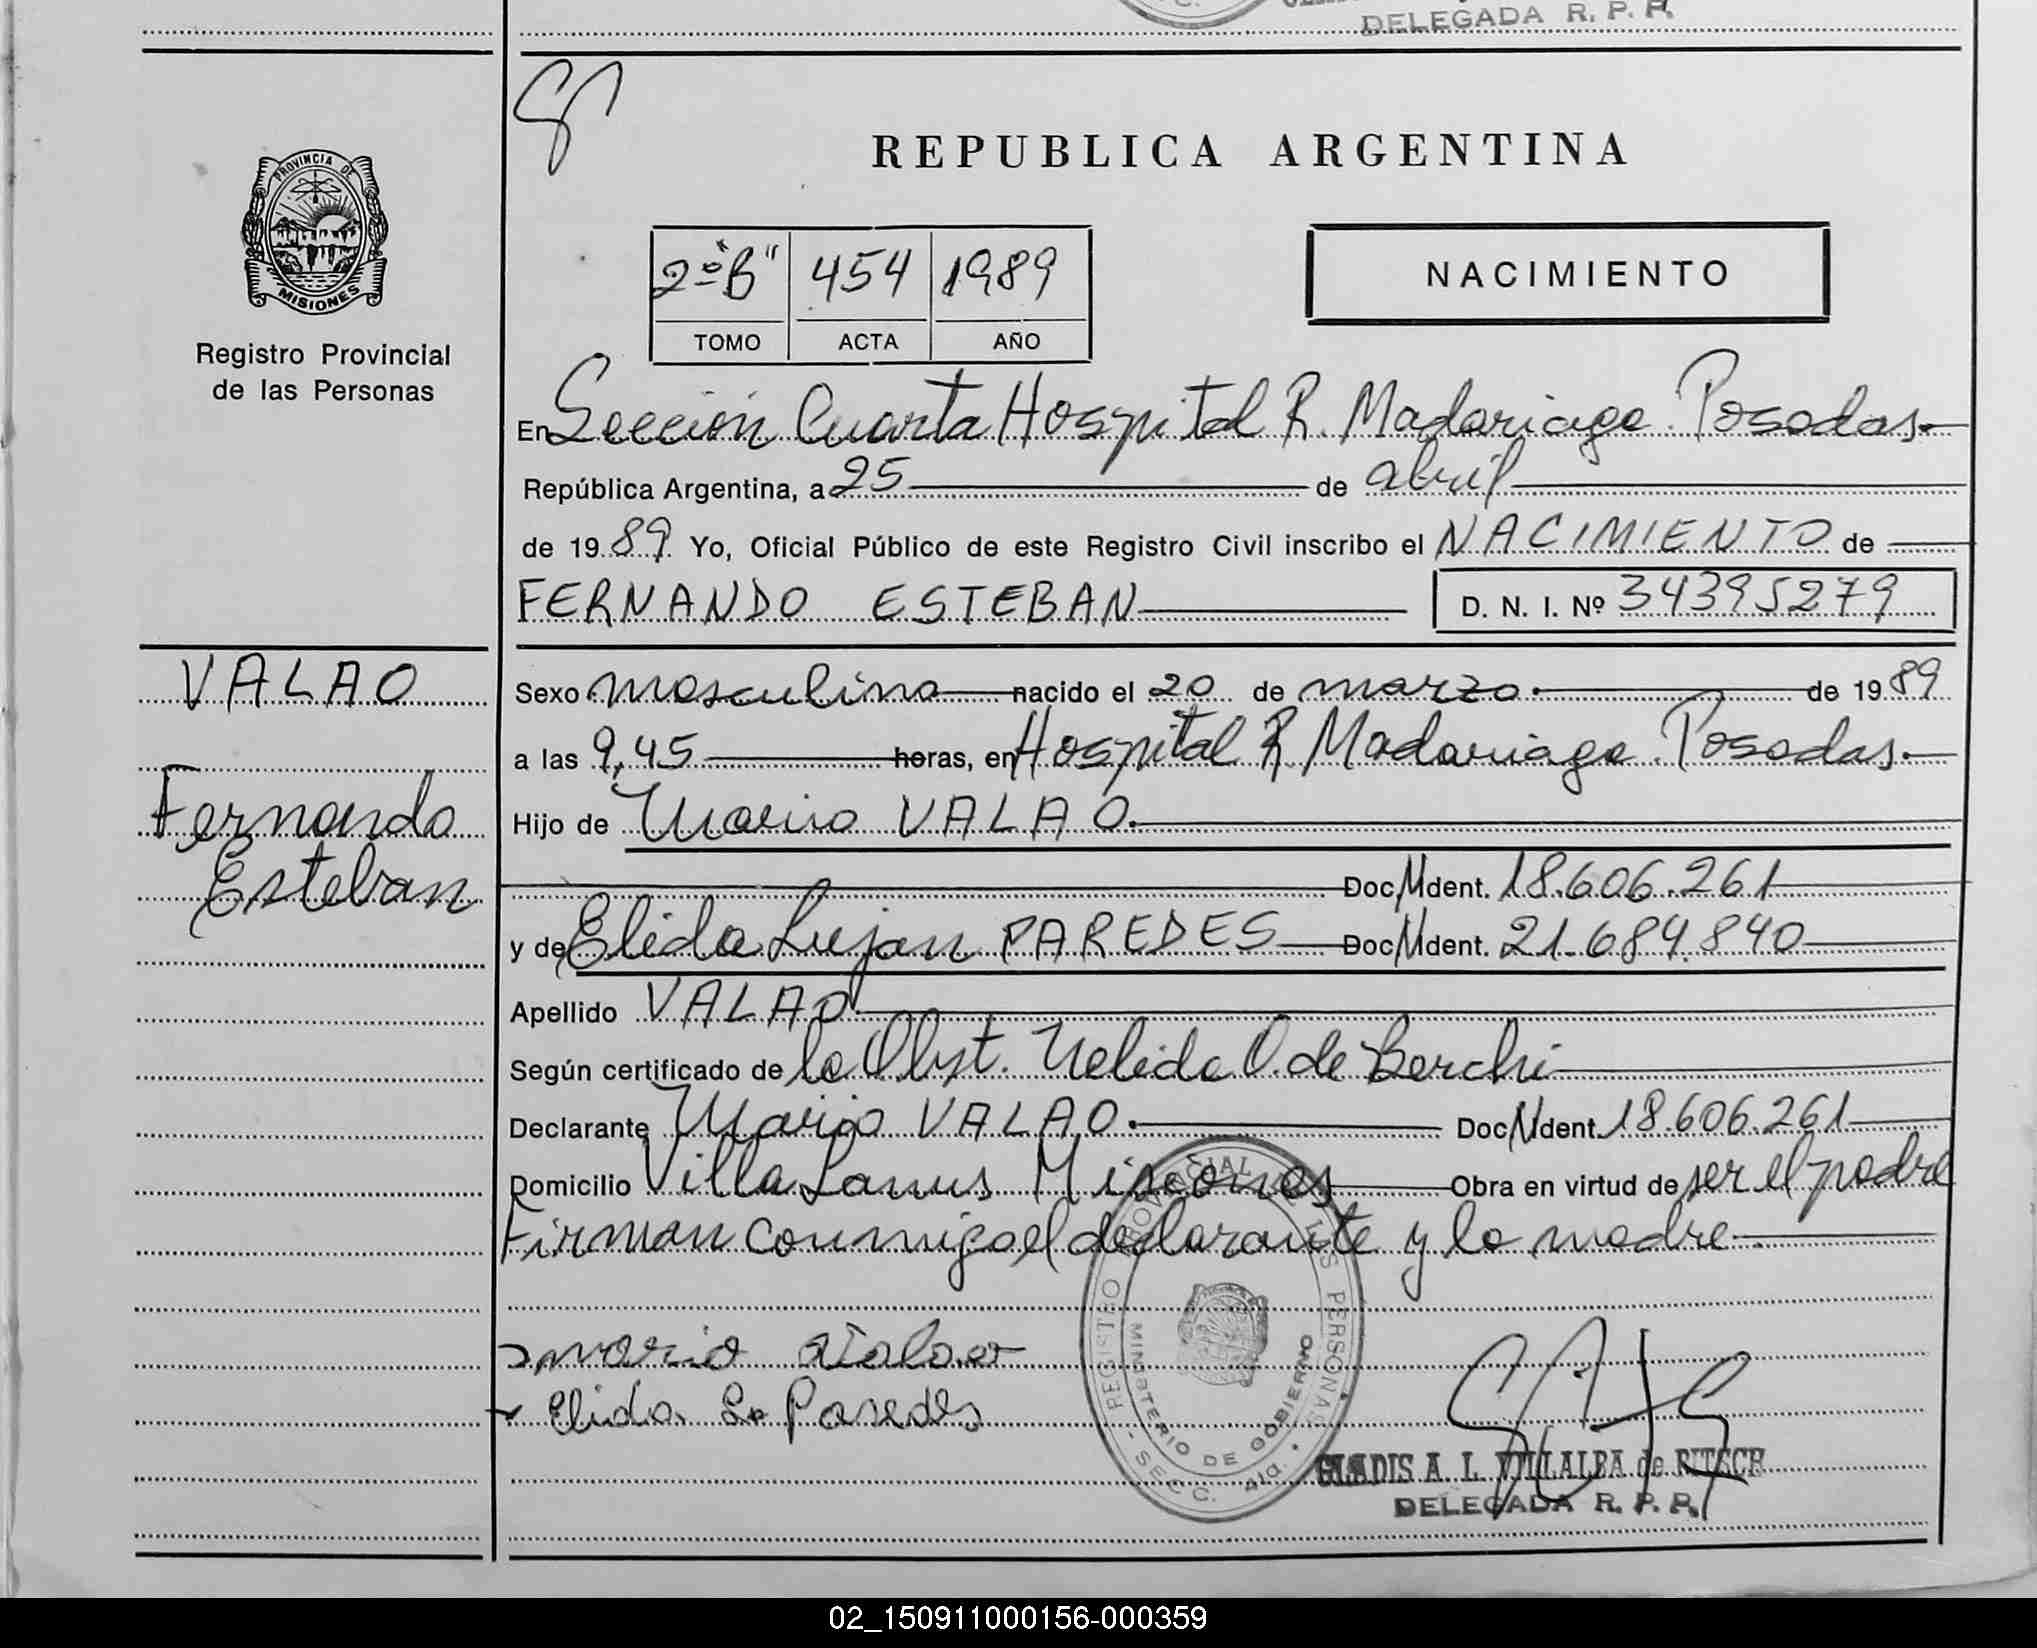 DELEGADA R. P. P.
REPUBLICA ARGENTINA
PROVINCIA DE
MISIONES
Registro Provincial
de las Personas
2º "B" 454 1989
TOMO ACTA AÑO
NACIMIENTO
En Sección Cuarta Hospital R. Madariaga. Posadas.
República Argentina, a 25 de abril
de 1989 Yo, Oficial Público de este Registro Civil inscribo el NACIMIENTO de
FERNANDO ESTEBAN D. N. I. Nº 34395279
VALAO
Fernando
Esteban
Sexo masculino nacido el 20 de marzo. de 1989
a las 9,45 horas, en Hospital R Madariaga. Posadas.
Hijo de Mario VALAO.
Doc. Ident. 18.606.261
y de Elida Lujan PAREDES Doc. Ident. 21.684.840
Apellido VALAO
Según certificado de la Obst. Nelida O. de Berchi
Declarante Mario VALAO. Doc. Ident. 18.606.261
Domicilio Villa Lanus Misiones Obra en virtud de ser el padre
Firman conmigo el declarante y la madre.
mario Valao
Elida L. Paredes
REGISTRO PROVINCIAL DE LAS PERSONAS
MINISTERIO DE GOBIERNO
SECC. 4ta.
GLADIS A. L. VILLALBA de RITSCH
DELEGADA R. P. P.
02_150911000156-000359